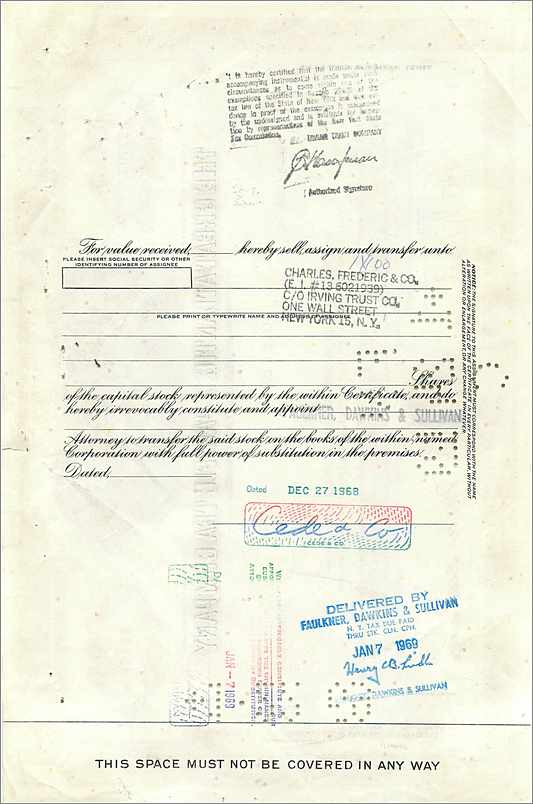 It is hereby certified that the
accompanying instrument is made under
circumstances as to come within one of the
exemptions specified in
tax law of the State of New York and
dence in proof of the exemption is
by the undersigned and is available for inspec
tion by representatives of the New York State
Tax Commission.
IRVING TRUST COMPANY
Authorized Signature
For value received, hereby sell, assign and transfer unto
PLEASE INSERT SOCIAL SECURITY OR OTHER
IDENTIFYING NUMBER OF ASSIGNEE
CHARLES, FREDERIC & CO.
(E. I. #13 6021939)
C/O IRVING TRUST CO.
ONE WALL STREET
NEW YORK 15, N. Y.
PLEASE PRINT OR TYPEWRITE NAME AND ADDRESS OF ASSIGNEE
Shares
of the capital stock represented by the within Certificate, and do
hereby irrevocably constitute and appoint
FAULKNER, DAWKINS & SULLIVAN
Attorney to transfer the said stock on the books of the within named
Corporation with full power of substitution in the premises.
Dated,
NOTICE: THE SIGNATURE TO THIS ASSIGNMENT MUST CORRESPOND WITH THE NAME
AS WRITTEN UPON THE FACE OF THE CERTIFICATE IN EVERY PARTICULAR, WITHOUT
ALTERATION OR ENLARGEMENT, OR ANY CHANGE WHATEVER.
Dated DEC 27 1968
Cede & Co
CEDE & CO.
DELIVERED BY
FAULKNER, DAWKINS & SULLIVAN
N. Y. TAX DUE PAID
THRU STK. CLN. CPN.
JAN 7 1969
FAULKNER, DAWKINS & SULLIVAN
JAN -7 1969
THIS SPACE MUST NOT BE COVERED IN ANY WAY